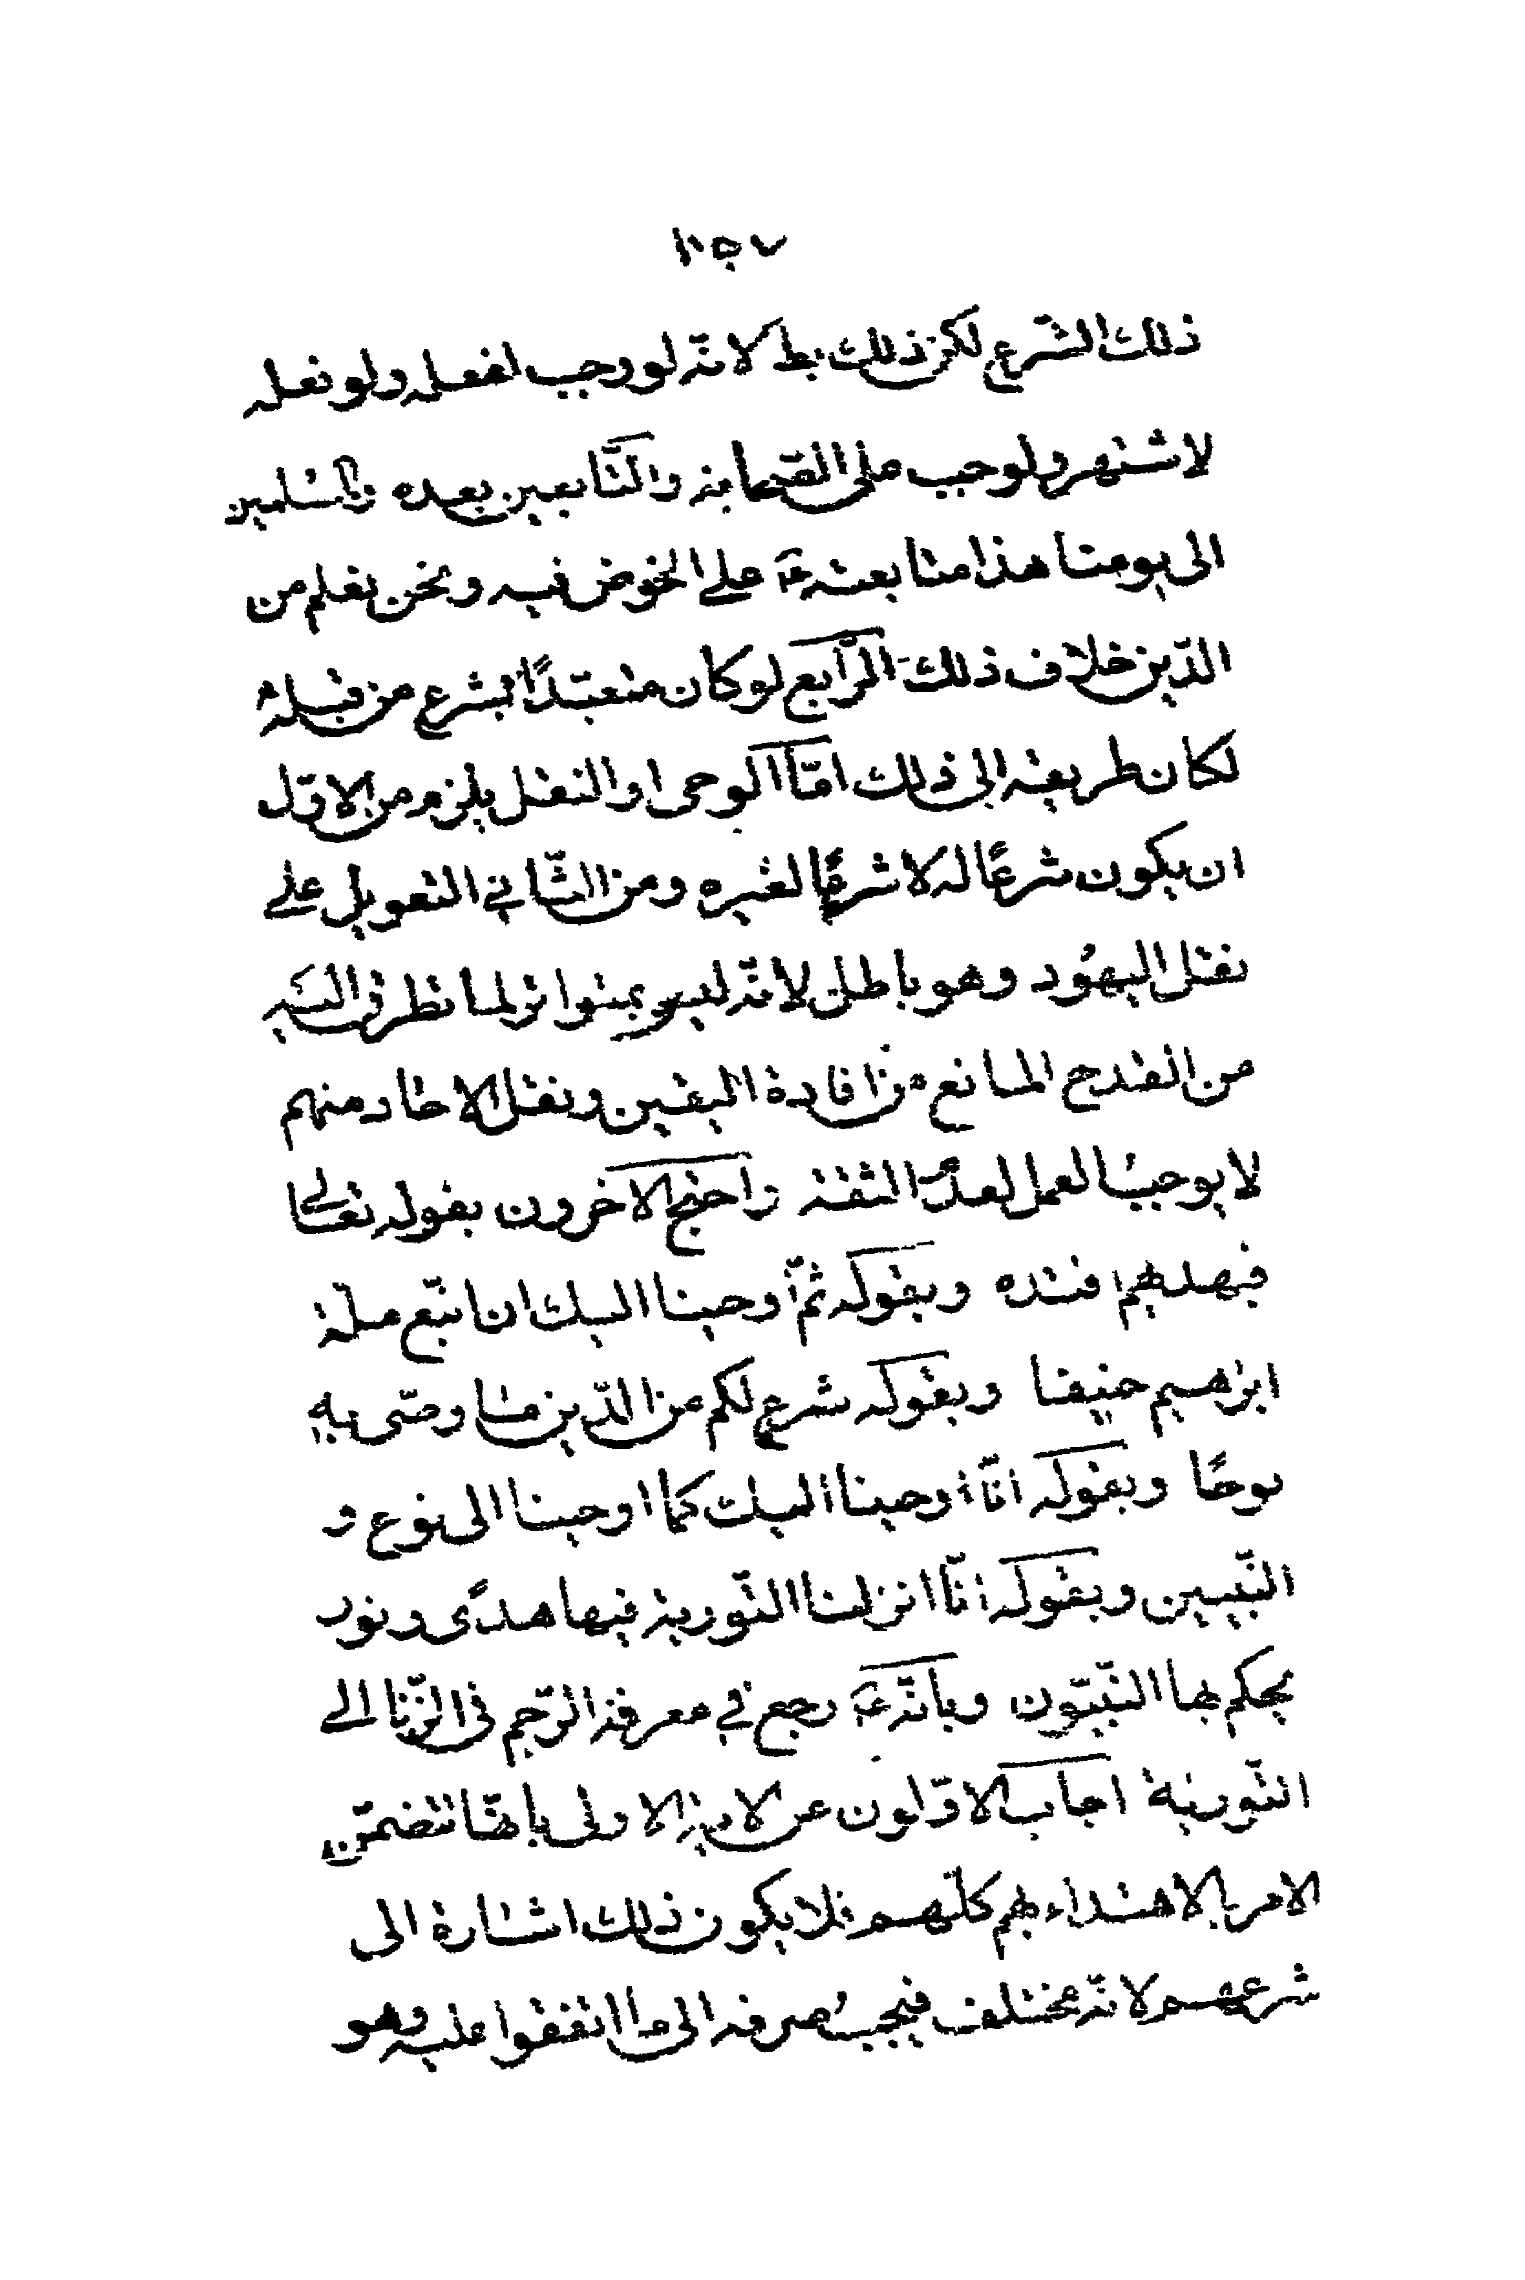 ذلك الشرع لكن ذلك بط لانه لو وجب لفعله ولو فعله
لاشتهر ولوجب على الصحابة والتابعين بعده والمسلمين
الى يومنا هذا متابعته عَ على الخوض فيه ونحن نعلم من
الدّين خلاف ذلك الرّابع لو كان متعبّدًا بشرع من قبله
لكان طريقه الى ذلك امّا الوحى او النقل يلزم من الاوّل
ان يكون شرعًا له لا شرعًا لغيره ومن الثّاني التعويل على
نقل اليهُود وهو باطل لانّه ليس بمتواتر لما نظر فى اليه
من القدح المانع من افادة اليقين ونقل الاحاد منهم
لا يوجبُ العمل لعدَم الثقة واحتج الاخرون بقوله تعالى
فبهديهم اقتده وبقوله ثمّ اوحينا اليك ان اتّبع ملّة
ابرٰهيم حنيفا وبقوله شرع لكم من الدّين ما وصّى به
نوحًا وبقوله انّا اوحينا اليك كما اوحينا الى نوح و
النّبيين وبقوله انّا انزلنا التّورية فيها هدًى ونور
يحكم بها النّبيّون وبانّه عَ رجع في معرفة الرّجم فى الزّنا الى
التّورية اجاب الاوّلون عن الاية الاولى بانّها تتضمّن
الامر بالاهتداء بهم كلّهم فلا يكون ذلك اشارة الى
شرعهم لانّه مختلف فيجبُ صرفه الى ما اتفقوا عليه وهو